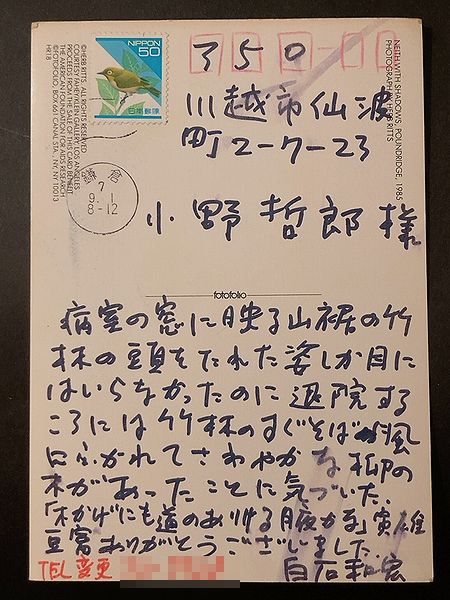 NIPPON
50
日本郵便
鎌倉
7
9. 1
8-12
350
川越市仙波
町2-7-23
小野哲郎様
NEITH WITH SHADOWS, POUNDRIDGE, 1985
PHOTOGRAPH: HERB RITTS
©HERB RITTS. ALL RIGHTS RESERVED
COURTESY FAHEY/KLEIN GALLERY, LOS ANGELES
PROCEEDS FROM THE SALE OF THIS CARD BENEFIT
THE AMERICAN FOUNDATION FOR AIDS RESEARCH
©FOTOFOLIO, BOX 661 CANAL STA., NY, NY 10013
HR18
fotofolio
病室の窓に映る山裾の竹
林の頭をたれた姿しか目に
はいらなかったのに退院する
ころには竹林のすぐそばが風
にふかれてさわやかな柳の
木があったことに気づいた。
「木かげにも道のありける月夜かな」寅雄
豆富ありがとうございました
白石
TEL変更